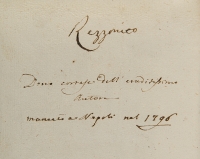 Rezzonico
Dono cortese dell' eruditissimo
Autore
mancato a Napoli nel 1796